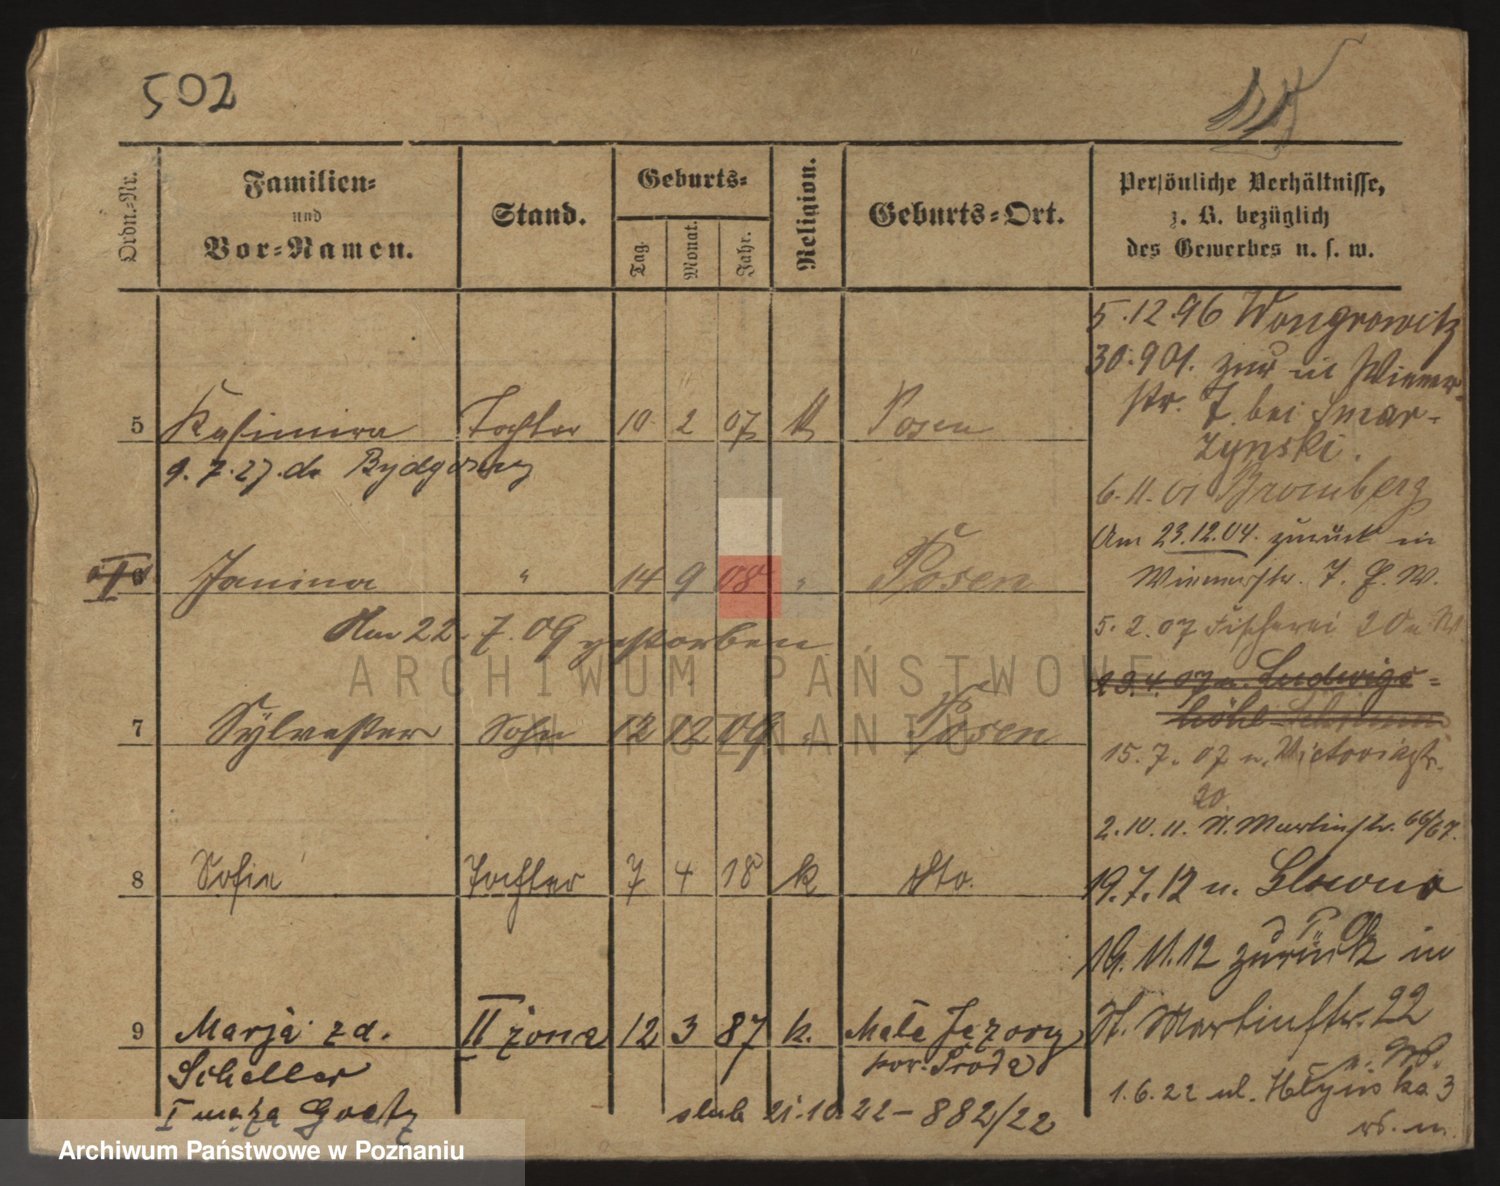 502
Ordn.-Nr.
Familien-
und
Vor-Namen.
Stand.
Geburts-
Tag.
Monat.
Jahr.
Religion.
Geburts-Ort.
Persönliche Verhältnisse,
z. B. bezüglich
des Gewerbes u. s. w.
5.12.96 Wongrowitz
30.9.01. zur in Wiener-
str. 7 bei Smar-
zynski.
5 Kasimira Tochter 10 2 07 k Posen
9.7.27. do Bydgoszcz
6.11.01 Bromberg
Am 23.12.04. zurück in
Wienerstr. 7. P. W.
6 Janina " 14 9 08 " Posen
Am 22.7.09 gestorben
5.2.07 Fischerei 20 n W.
19.4.07 n. Ludwigs-
höhe
7 Sylvester Sohn 12 12 09 " Posen
15.7.07 n. Victoriastr.
20
2.10.11. St. Martinstr. 66/67.
8 Sofie Tochter 7 4 18 k dto.
19.7.12 n.
16.11.12 zurück in
St. Martinstr. 22
9 Marja zd. II żona 12 3 87 k. Małe Jeziory
Scheller pow. Środa
I męża Goetz ślub 21.10.22 - 882/22
1.6.22 ul. 3
ARCHIWUM PAŃSTWOWE
W POZNANIU
Archiwum Państwowe w Poznaniu